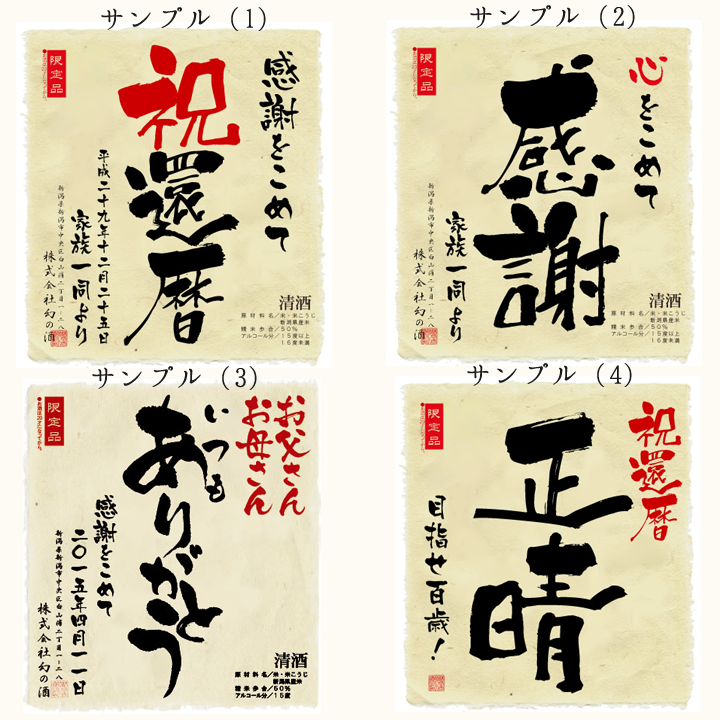 サンプル（1）
限定品
感謝をこめて
祝
還暦
平成二十九年十二月二十五日
家族一同より
新潟県新潟市中央区白山浦二丁目一-二八
株式会社幻の酒
清酒
原材料名／米・米こうじ
新潟県産米
精米歩合／50%
アルコール分／15度以上
16度未満
サンプル（2）
限定品
心をこめて
感謝
家族一同より
新潟県新潟市中央区白山浦二丁目一-二八
株式会社幻の酒
清酒
原材料名／米・米こうじ
新潟県産米
精米歩合／50%
アルコール分／15度以上
16度未満
サンプル（3）
限定品
●お酒は20才になってから。
お父さん
お母さん
いつも
ありがとう
感謝をこめて
二〇一五年四月一一日
新潟県新潟市中央区白山浦二丁目一-二八
株式会社幻の酒
清酒
原材料名／米・米こうじ
新潟県産米
精米歩合／50%
アルコール分／15度
サンプル（4）
限定品
祝還暦
正晴
目指せ百歳！